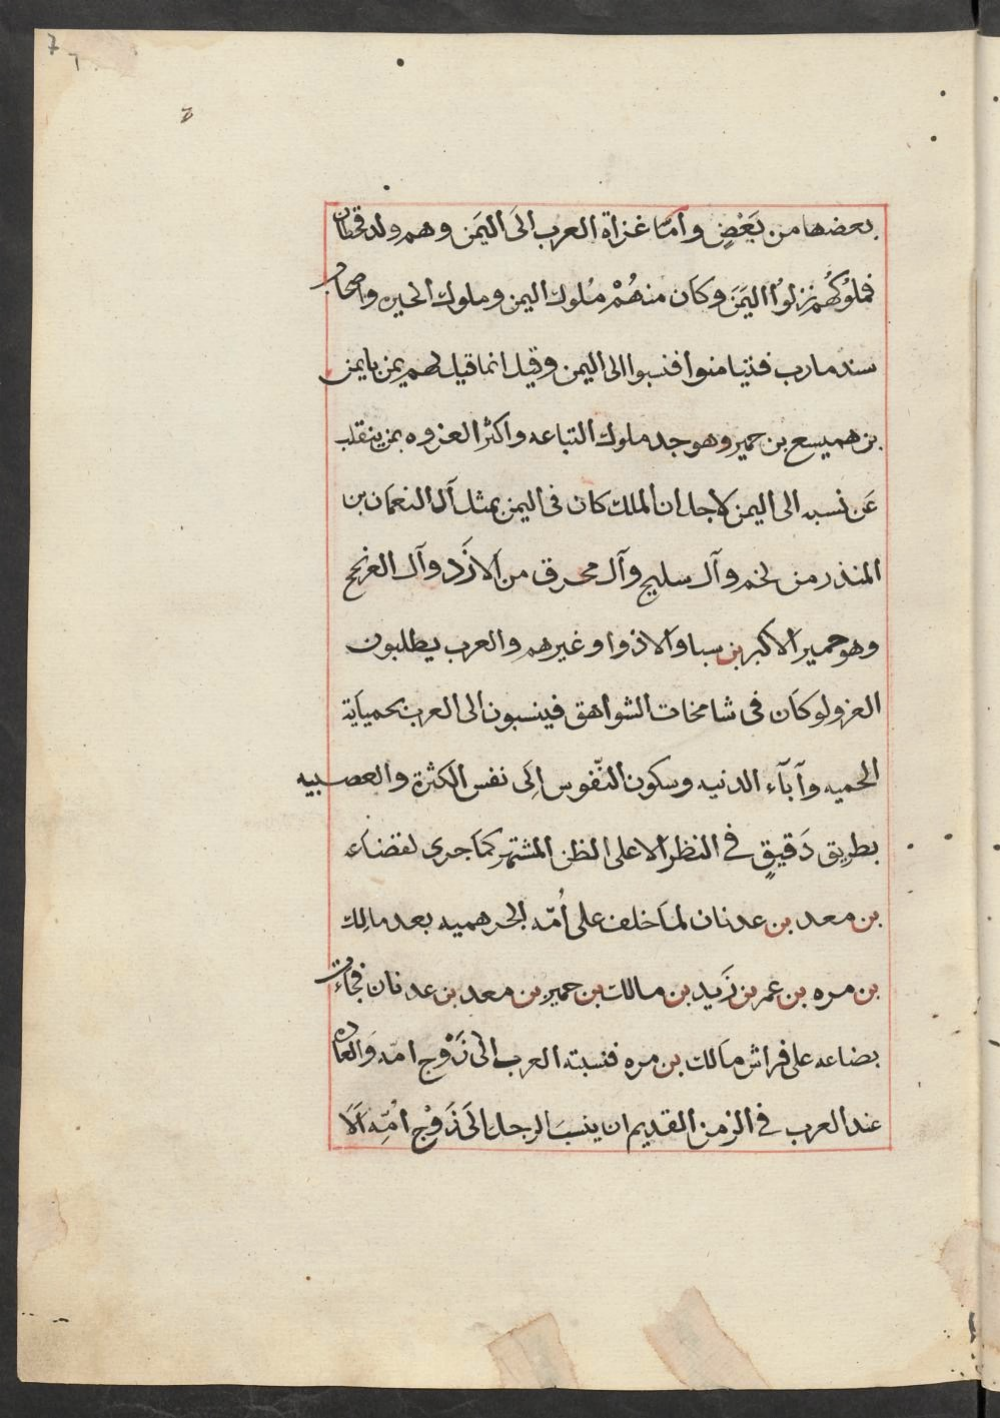 7
٦
بعضها من بَعْضٍ واما غزاة العرب الىَ اليَمن وهم ولد قحطان
فملوُكُهُم نزلوُا اليَمَنَ وكَان منهُمْ مُلوك اليمن وملوك الحيره واصحاب
سند مارب فتيامنوا فنسبوا الى اليمن وقيل انما قيل لهم يمن بايمن
بن هميسع بن حمير وهو جد ملوك التباعه واكثر العزوه بمن ينقلب
عَن نسبه الى اليمن لاجل ان الملك كان فى اليمن بمثل آل النعمَان بن
المنذر من لخم وآل سليح وآل محرق من الازَد وآل العرنجج
وهو حمير الاكبر بن سبا والاذوا وغيرهم والعرب يطلبون
العز ولو كَان فى شامخات الشواهق فينسبون الى العرب بحمياَية
الحميه وآبآء الدنيه وسكون النّفوس اِلَى نفس الكثرة والعصبيه
بطريق دَقيقٍ في النظر الا على الظن المشتهر كماَ جرى لقضاعَه
بن معد بن عدنان لماَ خلف على اُمّه الجرهميه بعد مالِك
بن مره بن عمر بن زَيد بن مالك بن حمير بن معد بن عدنان فجاَءت
بضاعه على فراش مَالك بن مره فنسبته العرب الى زَوْج امّه وَالعاَده
عند العرب في الزمن القديم ان ينسبَ الرجل الَى زَوْج اُمِّه اَلاَ